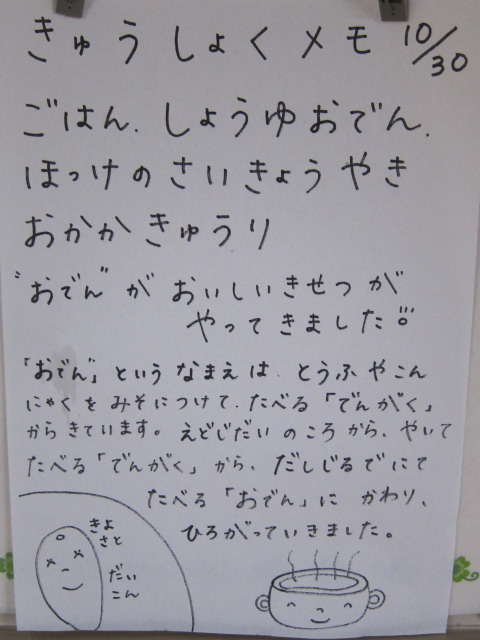 きゅうしょくメモ 10/30
ごはん.しょうゆおでん.
ほっけのさいきょうやき
おかかきゅうり
"おでん"がおいしいきせつが
やってきました!!
「おでん」というなまえは、とうふやこん
にゃくをみそにつけて、たべる「でんがく」
からきています。えどじだいのころから、やいて
たべる「でんがく」から、だしじるでにて
たべる「おでん」にかわり、
ひろがっていきました。
きよ
さと
だい
こん